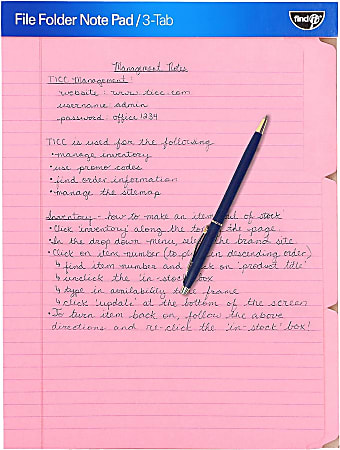 File Folder Note Pad / 3-Tab
find It
Management Notes
TICC Management:
website: www.ticc.com
username admin
password: office1234
TICC is used for the following
• manage inventory
• use promo codes
• find order information
• manage the sitemap
Inventory - how to make an item out of stock
• Click 'inventory' along the top of the page
• In the drop down menu, select the brand site
• Click on item number (to put in descending order)
↳ find item number and click on 'product title'
↳ unclick the 'in-stock' box
↳ type in availability time frame
↳ click 'update' at the bottom of the screen
• To turn item back on, follow the above
directions and re-click the 'in-stock' box!